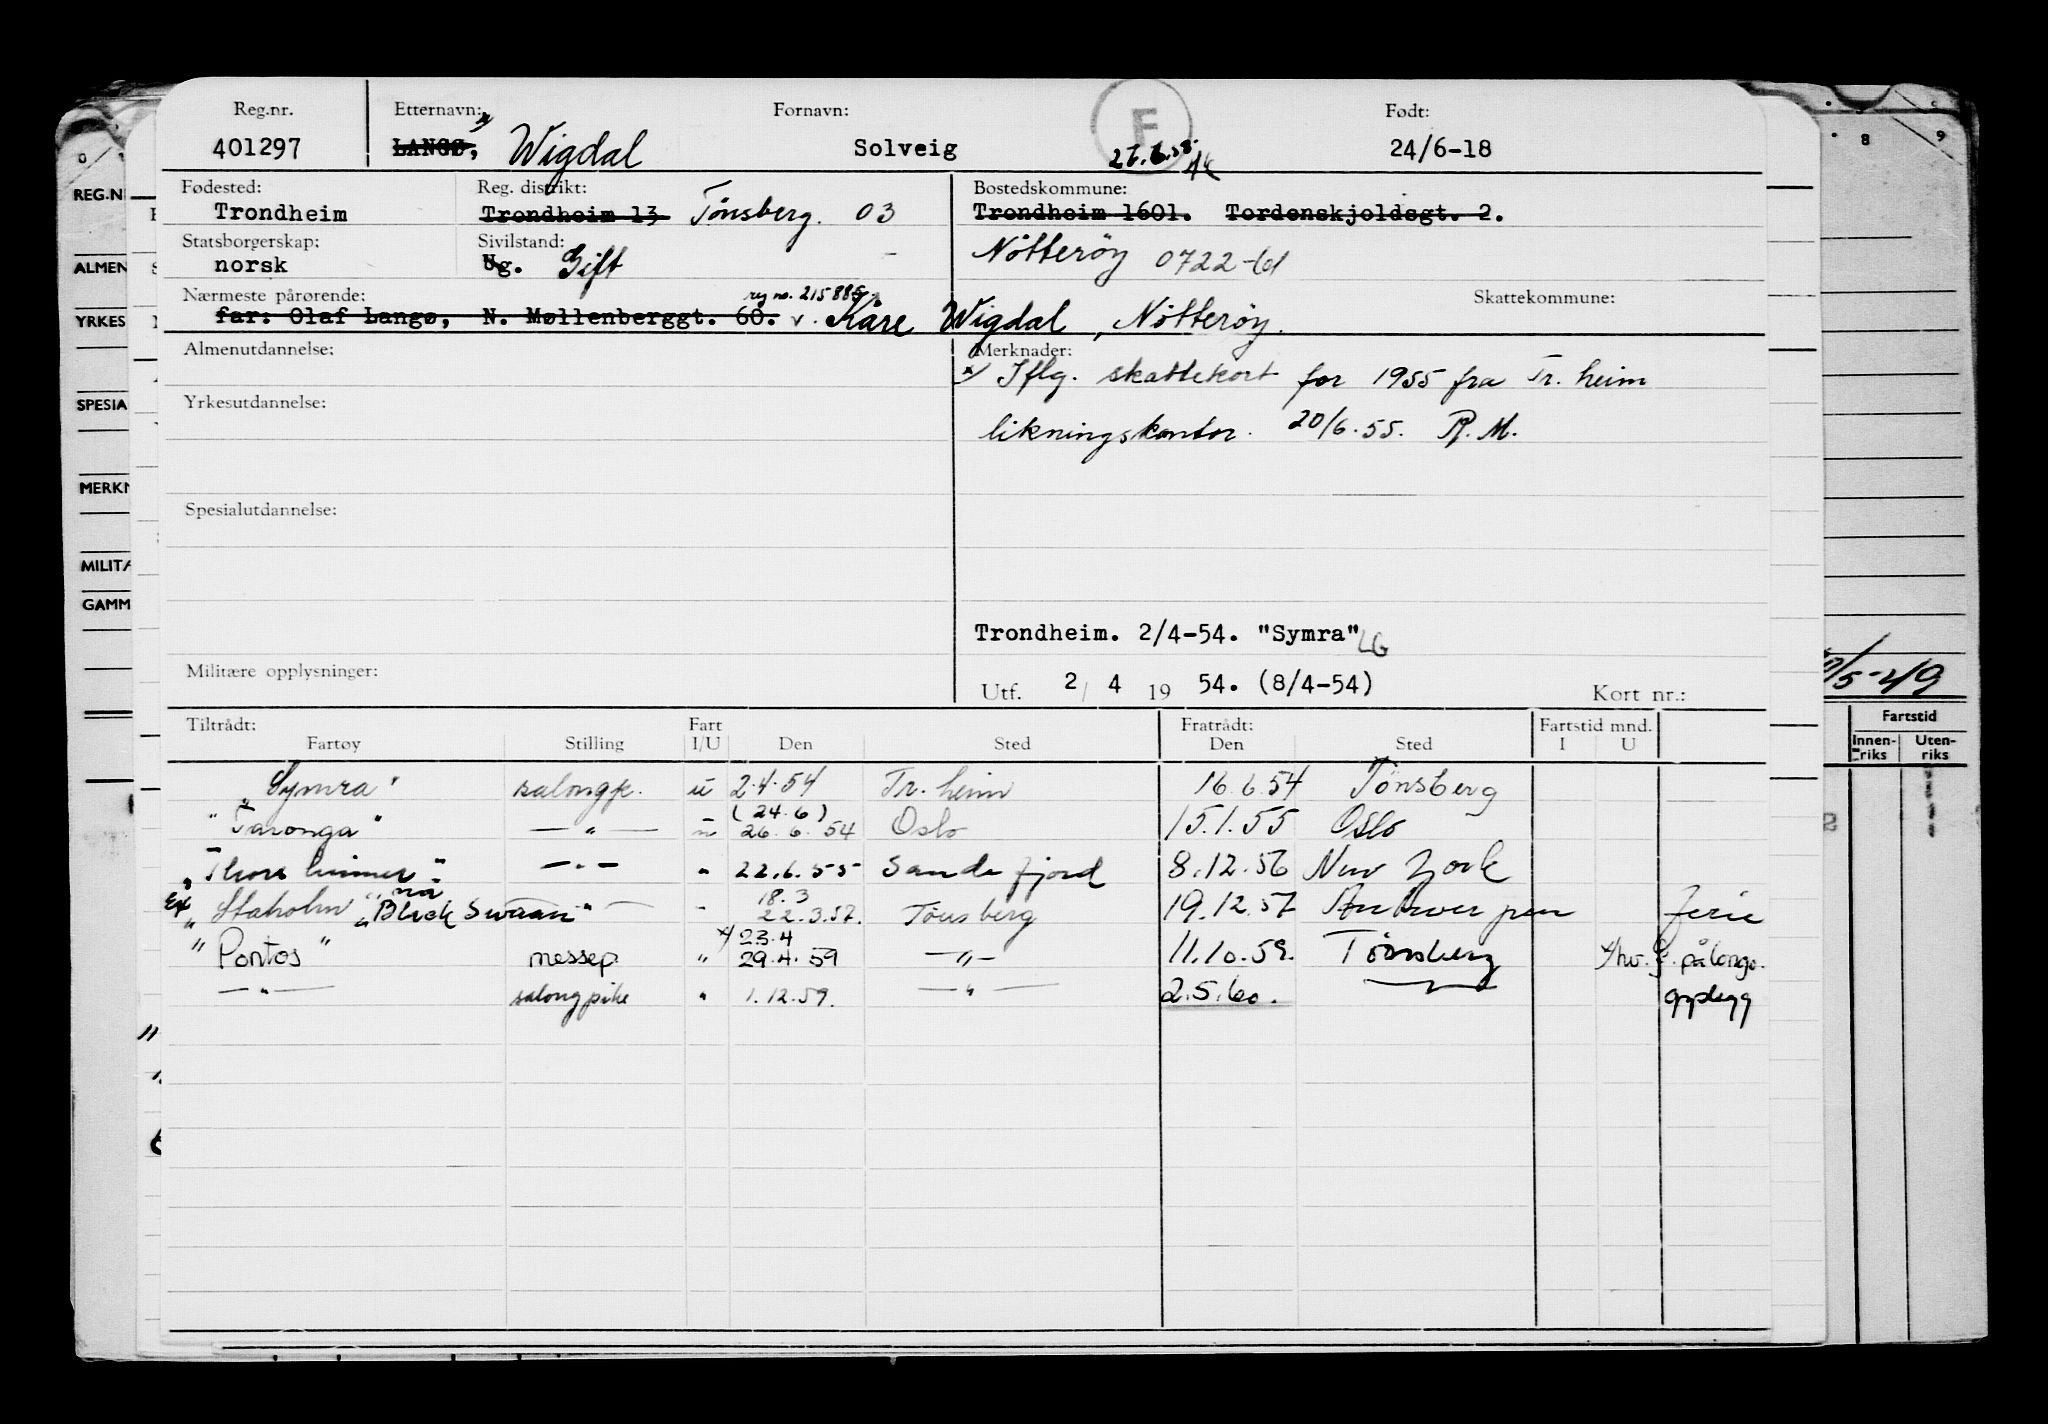 Reg.nr. Etternavn: Fornavn: Født:
401297 LANGØ, Wigdal Solveig F 24/6-18
Fødested: Reg. distrikt: Bostedskommune:
Trondheim Trondheim 13 Tönsberg. 03 Trondheim 1601. Tordenskjoldsgt. 2.
Statsborgerskap: Sivilstand:
norsk Ug. Gift Nötteröy 0722
Nærmeste pårørende: Skattekommune:
far: Olaf Langø, N. Møllenberggt. 60. Kåre Wigdal, Nötteröy.
Almenutdannelse: Merknader:
x/ Iflg. skattekort for 1955 fra Tr. heim
Yrkesutdannelse:
likningskontor. 20/6.55. R. M.
Spesialutdannelse:
Trondheim. 2/4-54. "Symra" LG
Militære opplysninger:
Utf. 2/ 4 19 54. (8/4-54) Kort nr.:
Tiltrådt: Fart Fratrådt: Fartstid mnd.
Fartøy Stilling I/U Den Sted Den Sted I U
"Symra" salongp. u 2.4.54 Tr. heim 16.6.54 Tönsberg
(24.6)
"Taronga" — " — u 26.6.54 Oslo 15.1.55 Oslo
— " — " 22.6.55 Sandefjord 8.12.56 New York
nå 18.3
Ex "Staholm" "Black Swan" — " 22.3.57. Tönsberg 19.12.57 Antwerpen ferie
x/ 23.4
"Pontos" messep. " 29.4.59 — " — 11.10.59. Tönsberg
— " — salongpike " 1.12.59. — " — 2.5.60. opplegg
REG.N
ALMEN
YRKES
SPESIA
MERKN
MILITÆ
GAMM
8 9
/5-49
Fartstid
Innen-riks Uten-riks